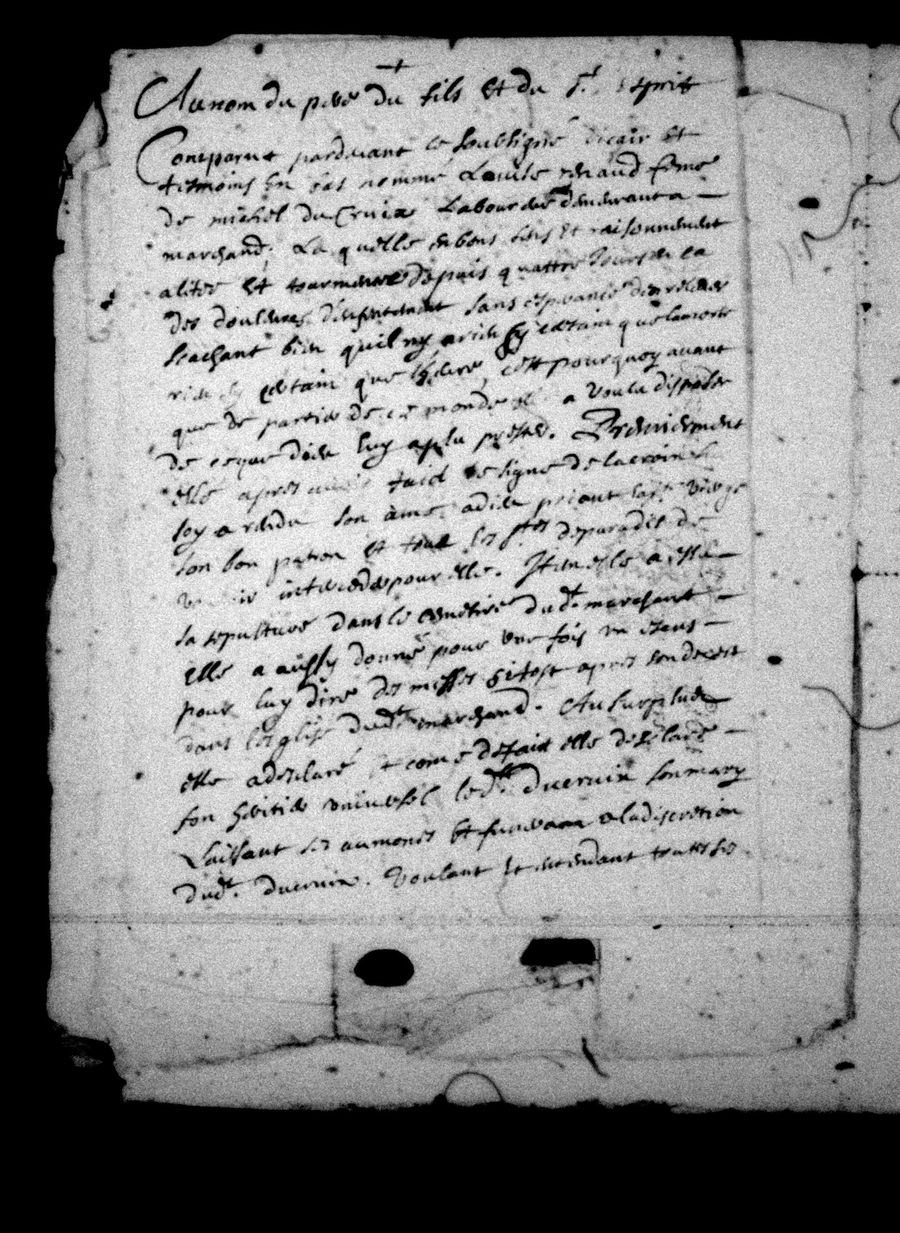 Au nom du pere du fils et du St esprit
Comparut pardevant le soubsigné vicair et
tesmoins en bas nommé Louise renaud feme
de michel du Cruix Laboureur demeurant a
marchand, La quelle en bons sens et raisonnement
alitee et tourmentee depuis quattre jours de la
des douleurs d'enfentement sans esperance d'en relever
scachant bien quil ny a rien sy certain que la morte
rien sy certain que l'heure, cest pourquoy avant
que de partir de ce monde elle a voulu disposer
de ce que dieu luy a plu prester. Premierement
elle apres avoir faict le signe de la croix
soy a rendu son ame a dieu priant la ste vierge
son bon patron et tous les stes de paradis de
vouloir interceder pour elle. Item elle a esleu
sa sepulture dans le cemetiere du dt marchant
elle a aussy donné pour une fois un escus
pour luy dire des messes sitost apres son deces
dans l'esglise dudt marchand. Au surplus
elle a desclaré et come de fait elle desclare
son heritier universel ledt ducruix son mary
Laissant ses aumones et funeraux a la discretion
dudt. ducruix. Voulant et entendant toutes ses